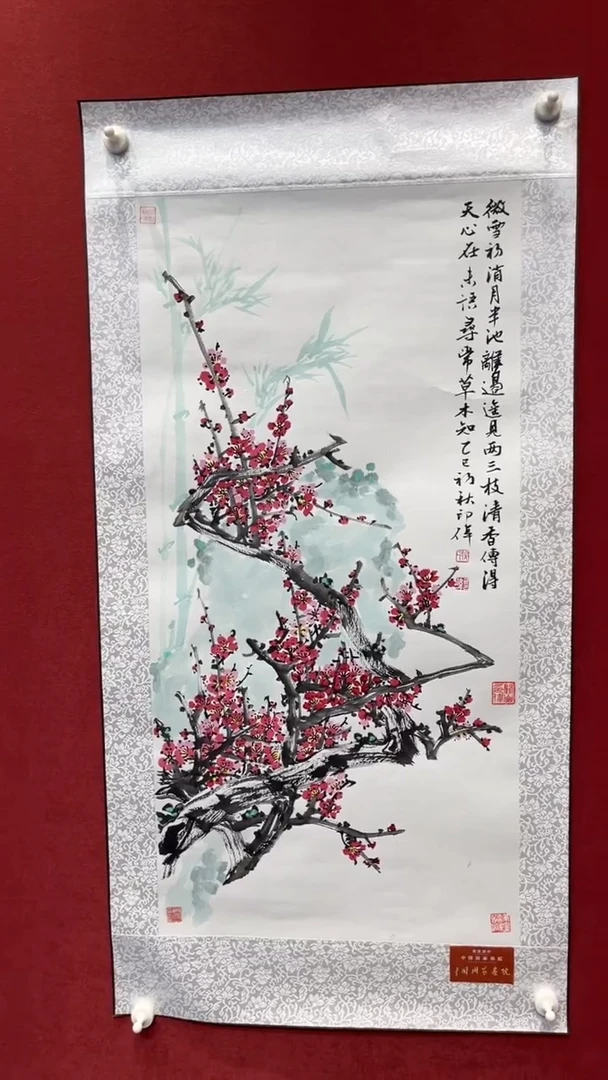 微雪初消月半池離邊遙見两三枝清香傳得
天心在未語尋常草木知乙巳初秋印偉
中国国家画院